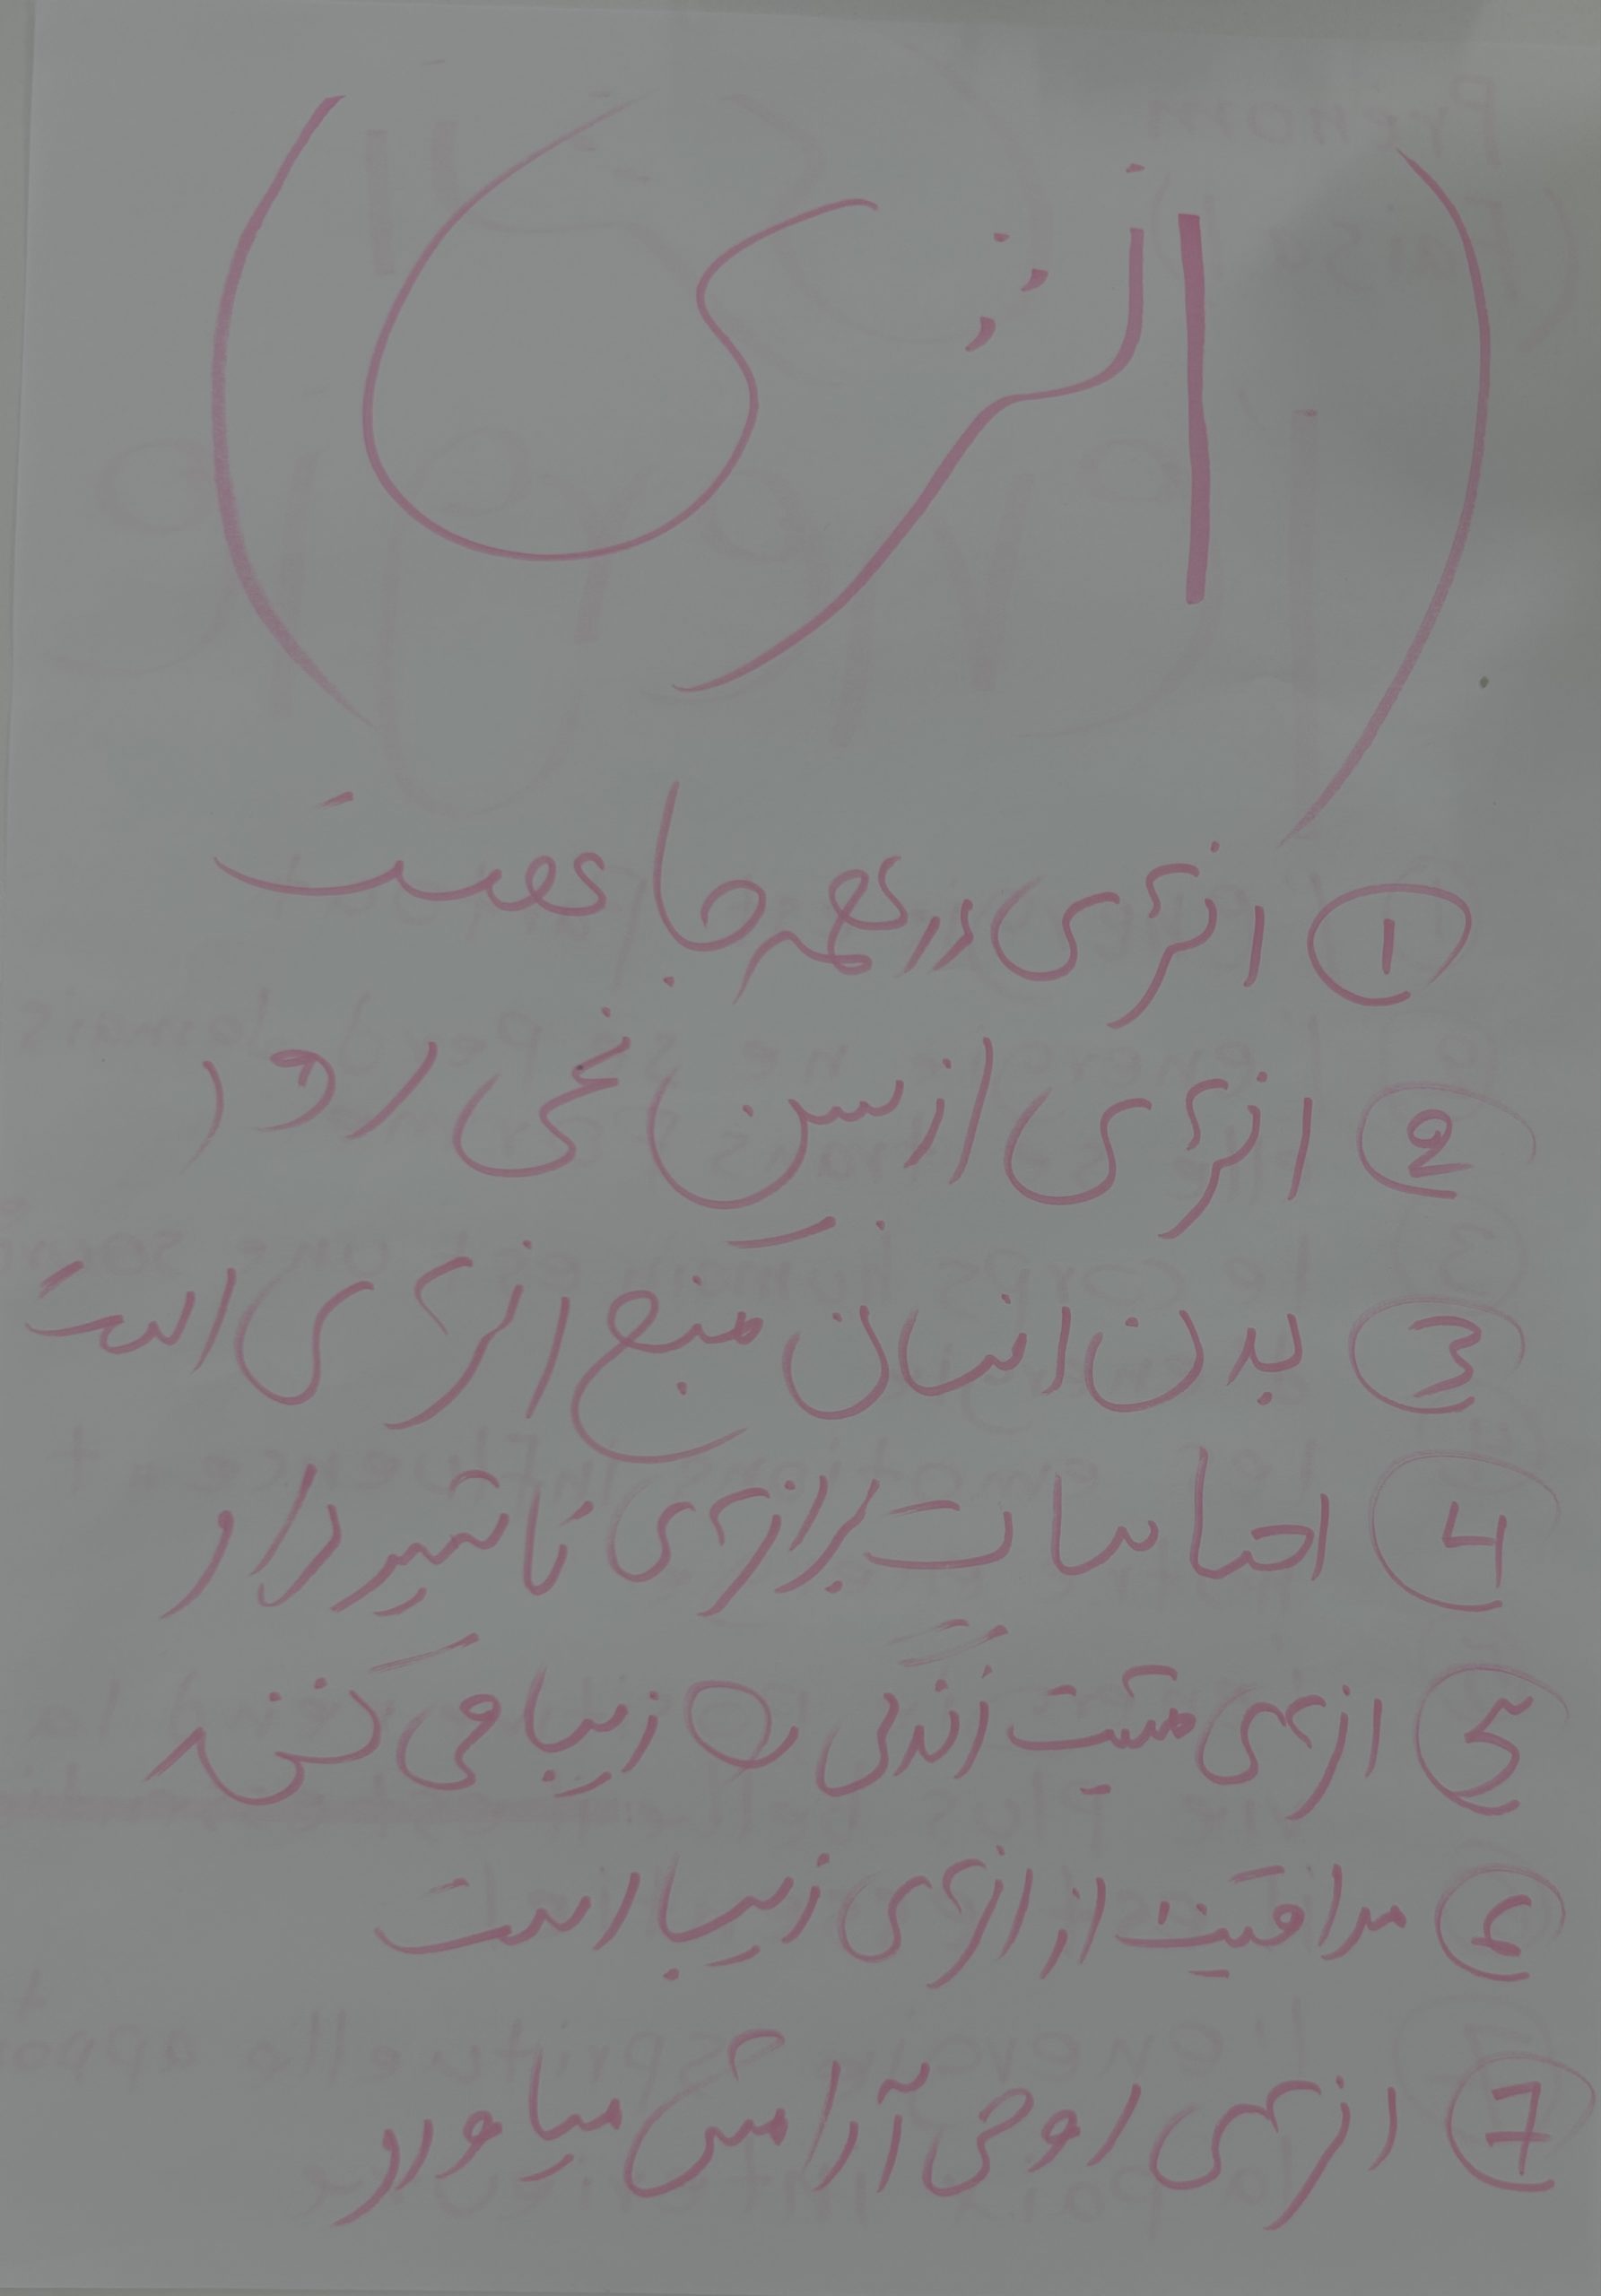 (انرژی)
1 انرژی در همه جا هست
2 انرژی از بین نمی رود
3 بدن انسان منبع انرژی است
4 احساسات بر انرژی تاثیر دارد
5 انرژی مثبت زندگی را زیبا می کند
6 مراقبت از انرژی زیبا است
7 انرژی روحی آرامش میاورد